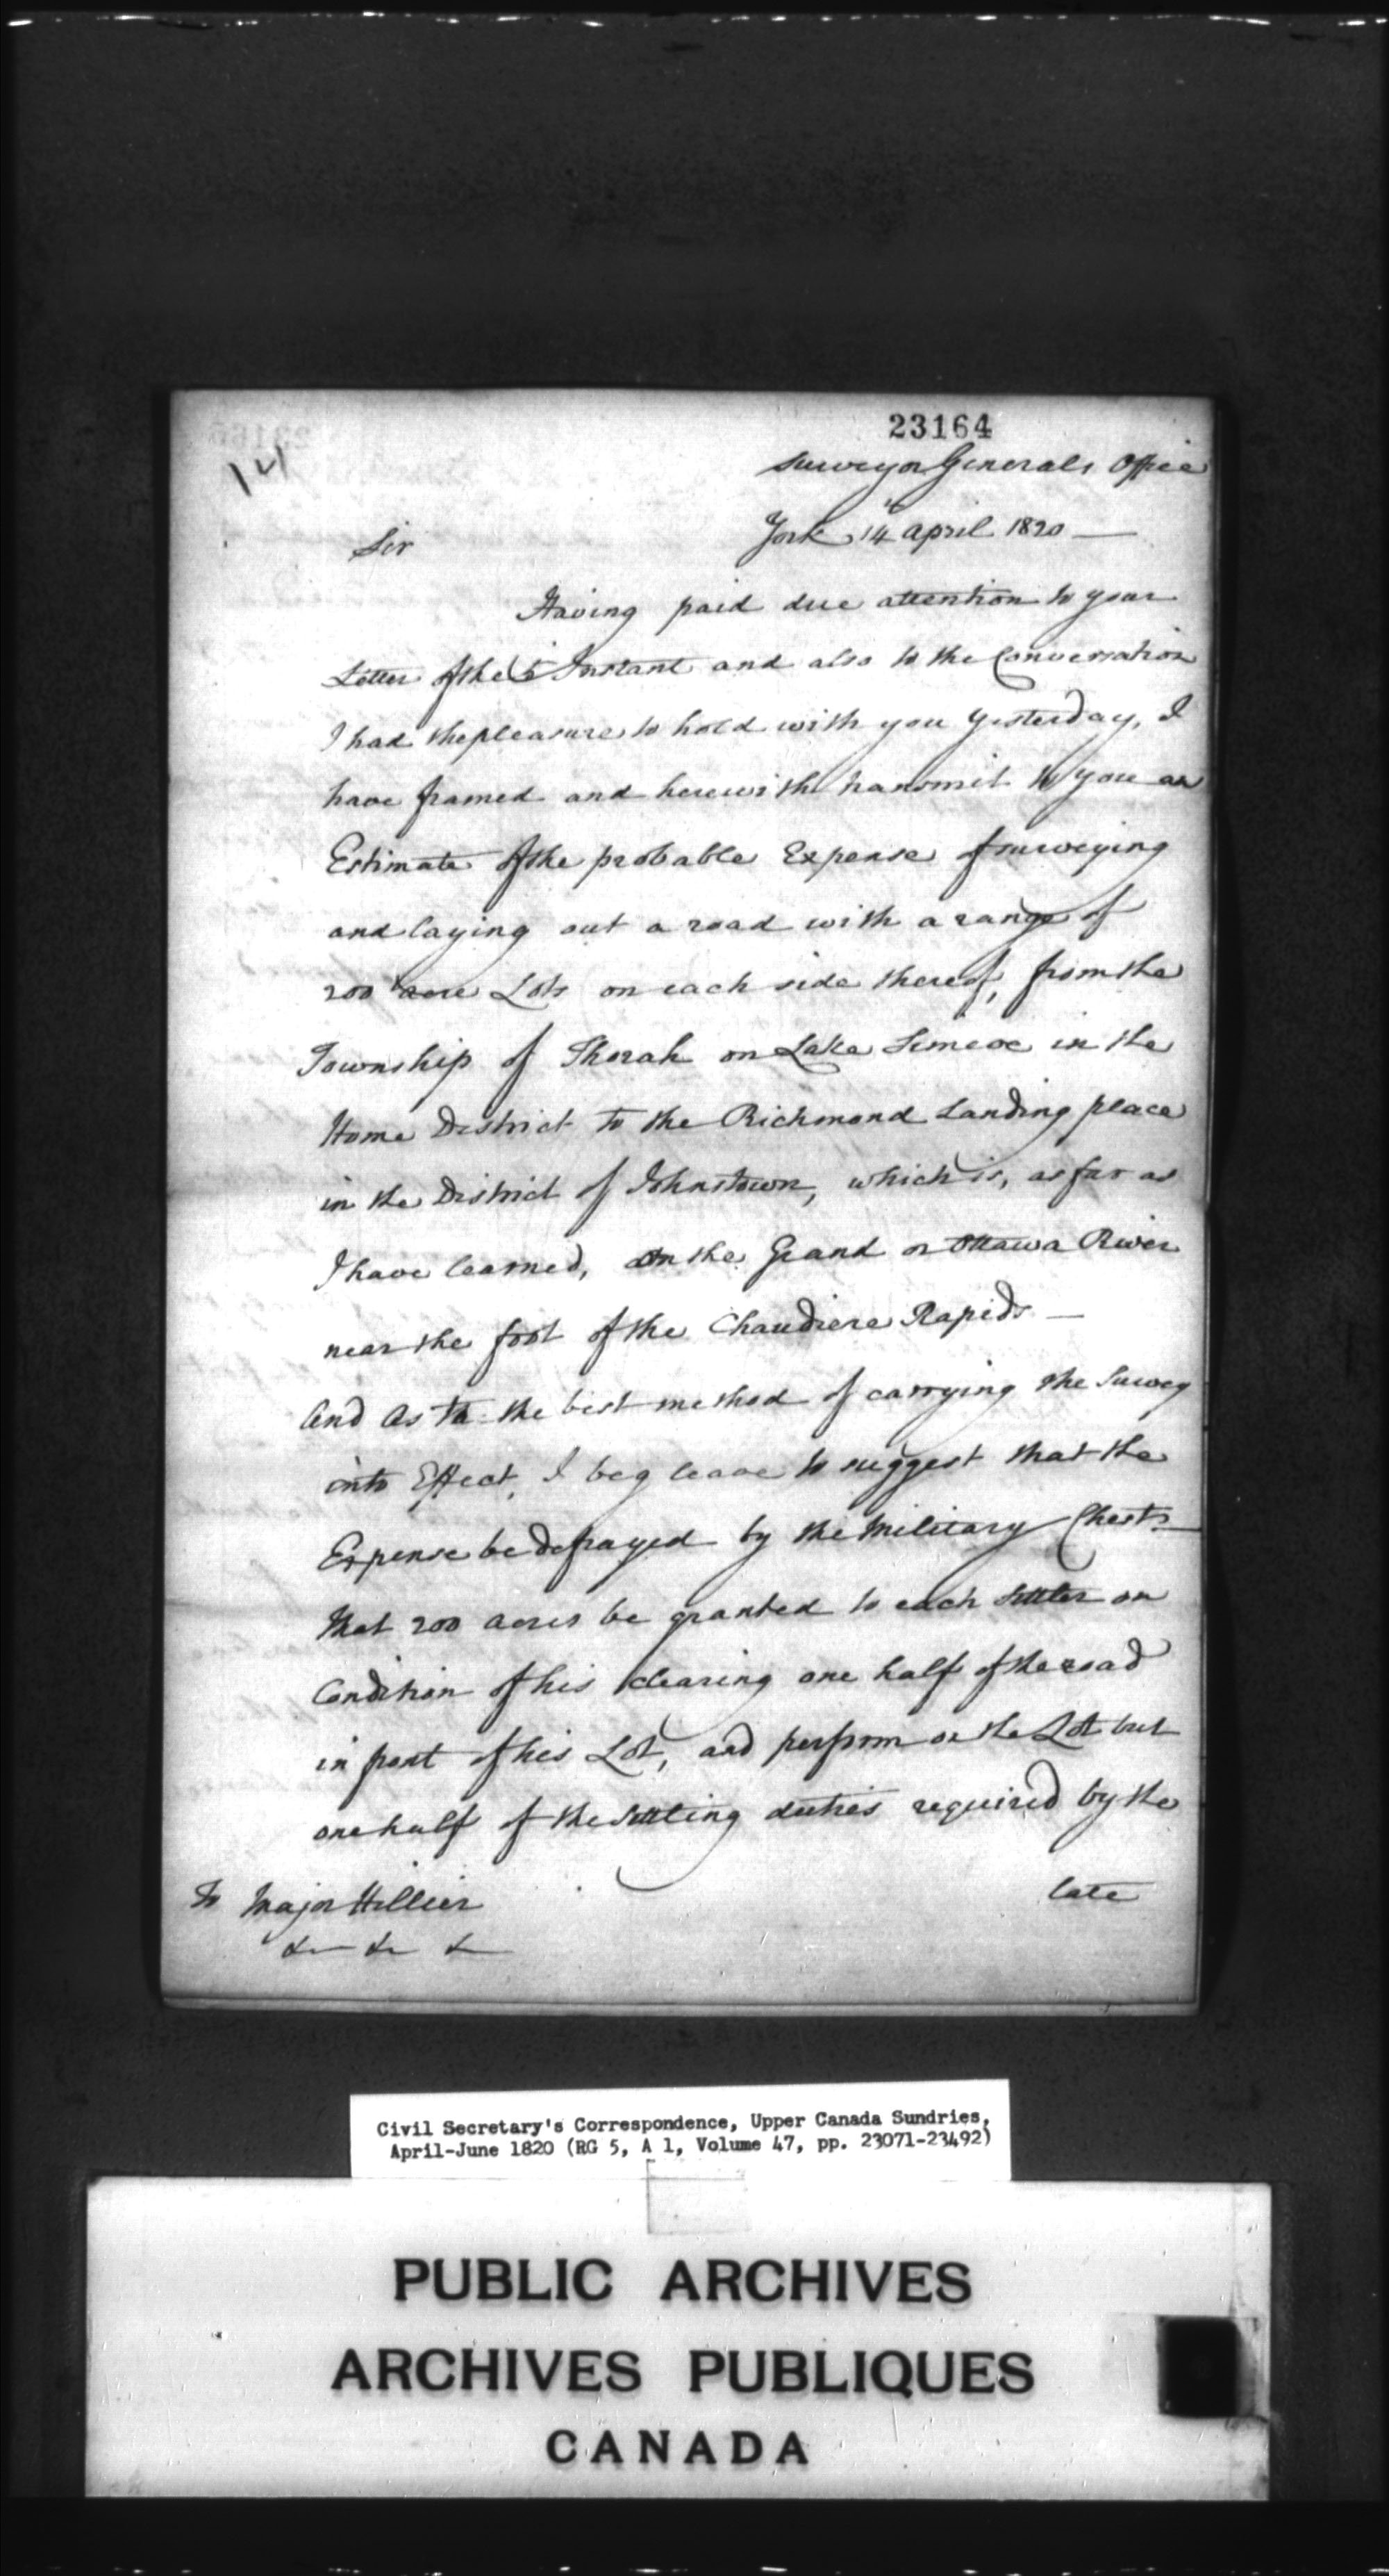 23164
14
Surveyor Generals Office
York 14 April 1820 —
Sir
Having paid due attention to your
Letter of the 5 Instant and also to the Conversation
I had the pleasure to hold with you yesterday, I
have framed and herewith transmit to you an
Estimate of the probable Expense of surveying
and laying out a road with a range of
200 acre Lots on each side thereof, from the
Township of Thorah on Lake Simcoe in the
Home District to the Richmond Landing place
in the District of Johnstown, which is, as far as
I have learned, on the Grand or Ottawa River
near the foot of the Chaudiere Rapids —
And as to the best method of carrying the Survey
into Effect, I beg leave to suggest that the
Expense be defrayed by the Military Chest —
That 200 acres be granted to each settler on
Condition of his clearing one half of the road
in front of his Lot, and perform on the Lot but
one half of the settling duties required by the
late
To Major Hillier
&c &c &c
Civil Secretary's Correspondence, Upper Canada Sundries,
April-June 1820 (RG 5, A 1, Volume 47, pp. 23071-23492)
PUBLIC ARCHIVES
ARCHIVES PUBLIQUES
CANADA